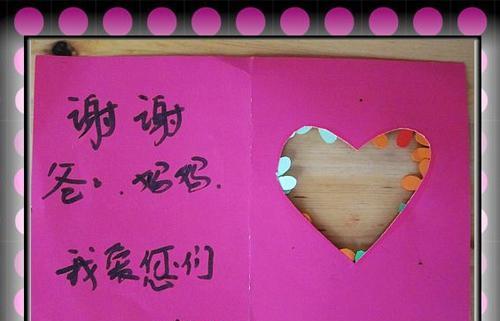 谢谢
爸爸.妈妈.
我爱您们